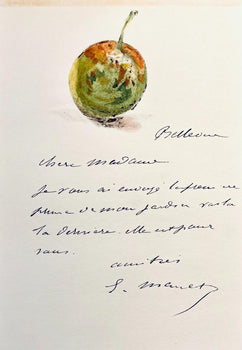 Bellevue
chère madame
je vous ai envoyé la première
prune de mon jardin
la dernière. elle est pour
vous.
amitiés
E. Manet